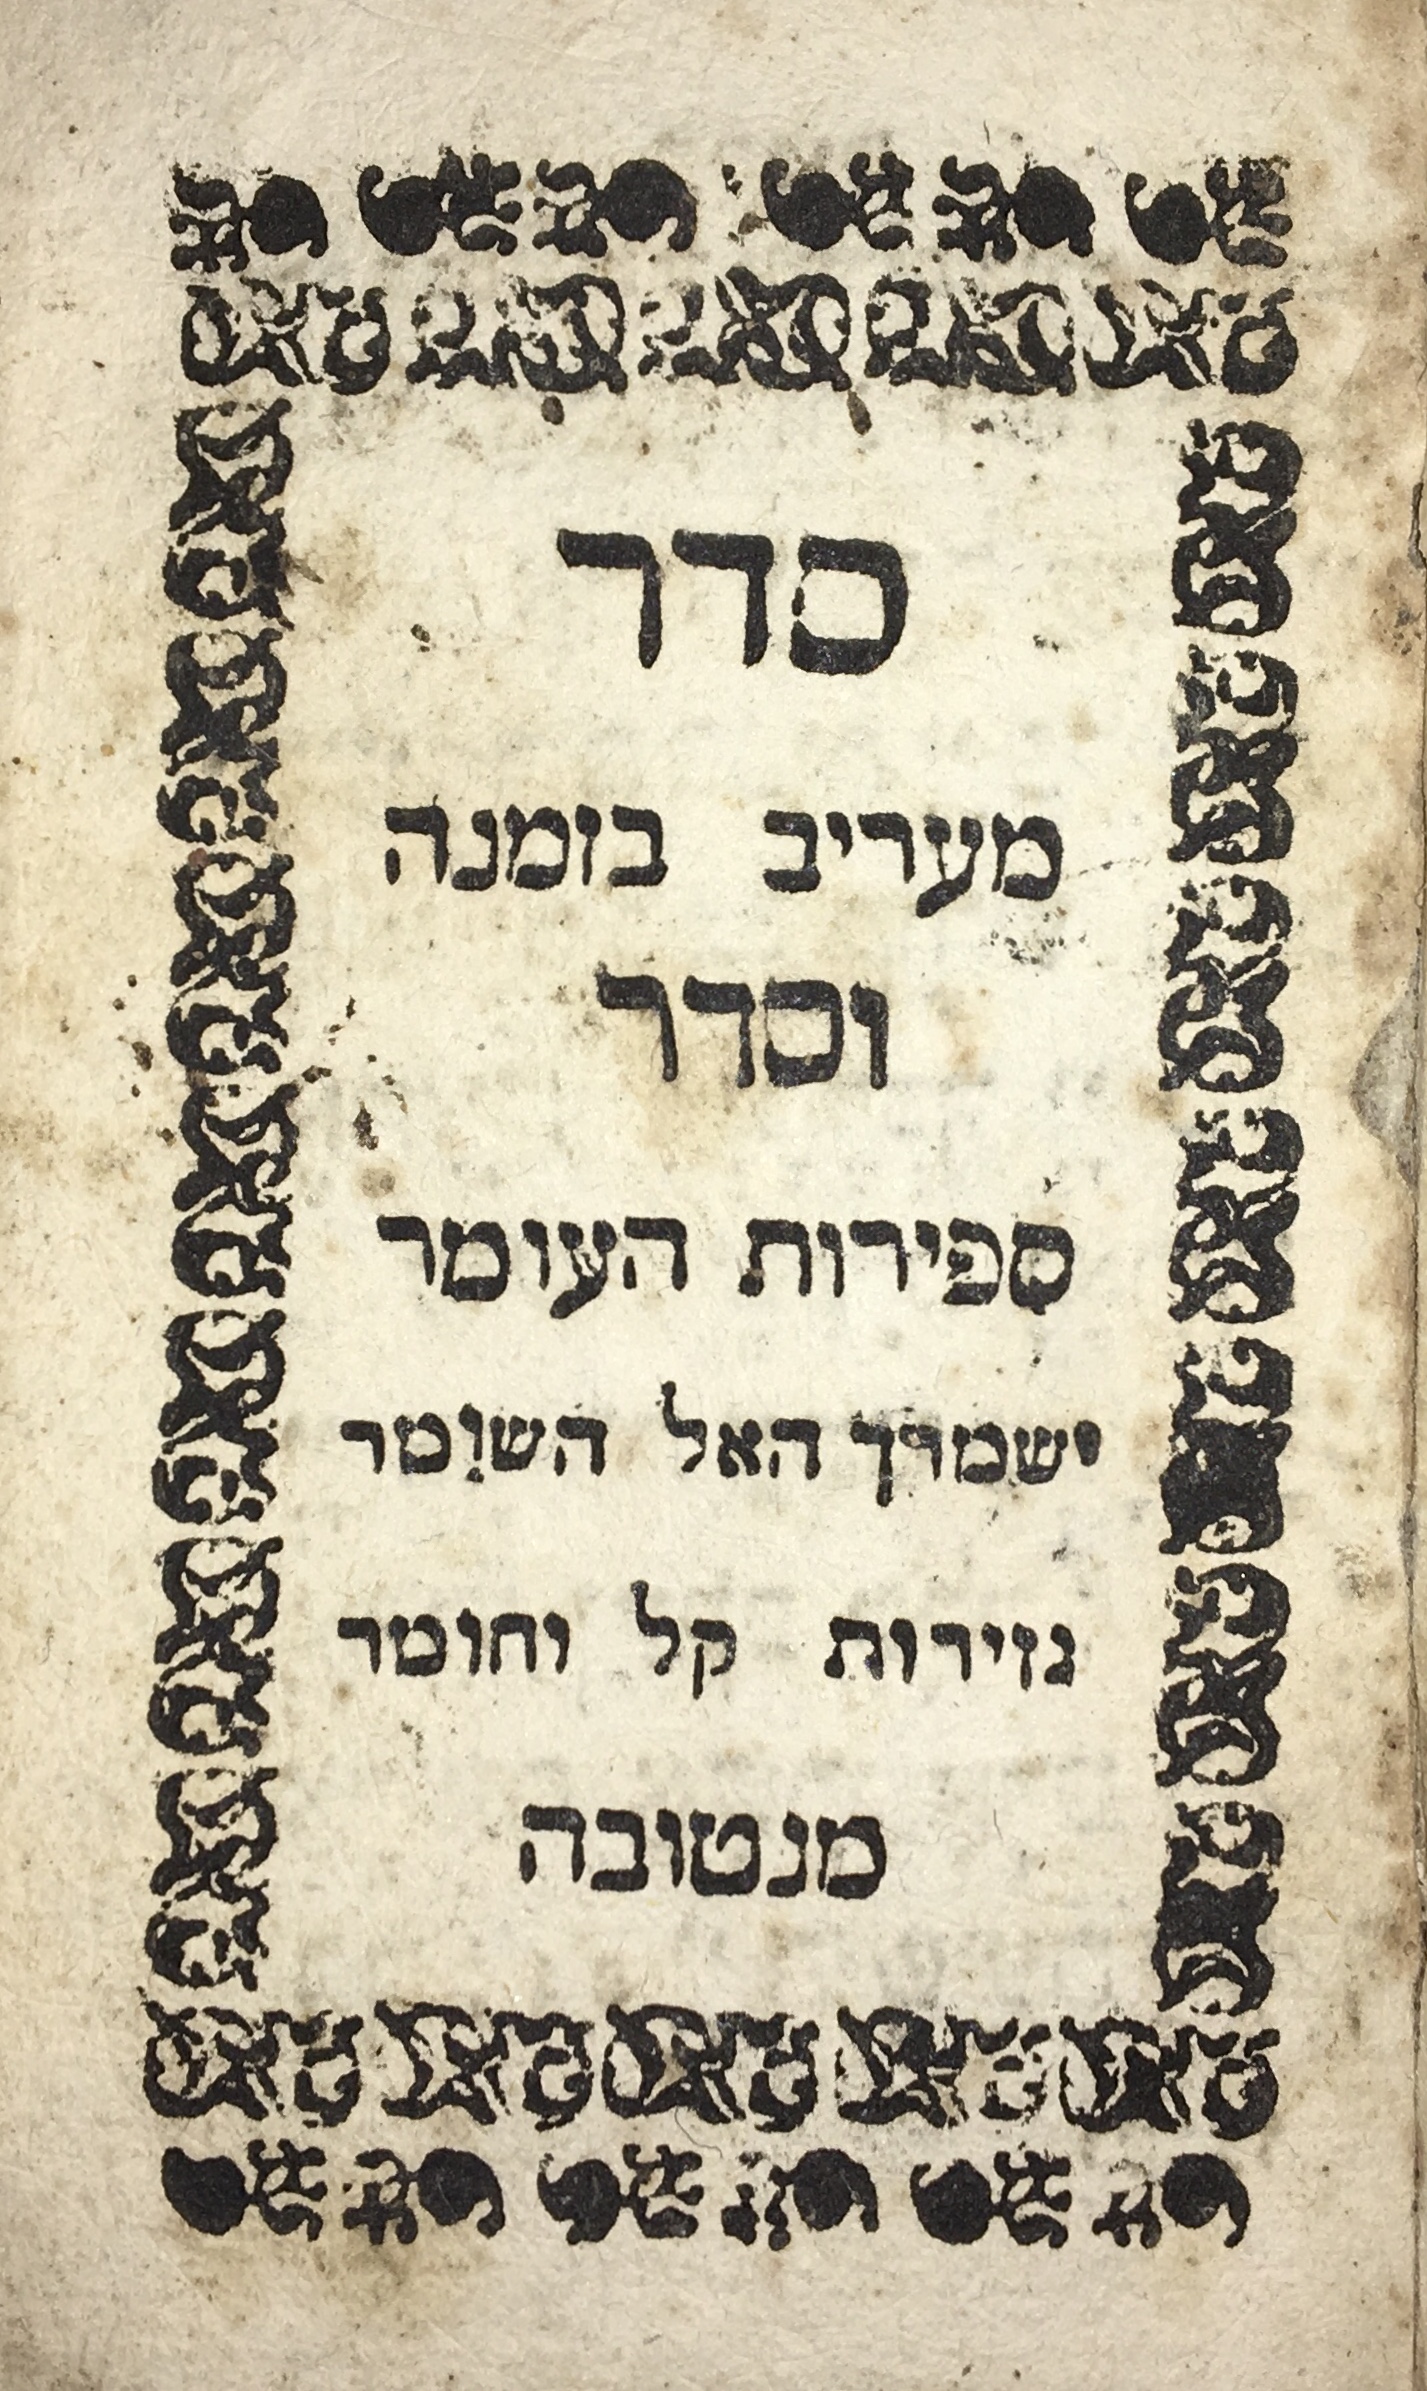 סדר
מעריב בזמנה
וסדר
ספירות העומר
ישמרך האל השומר
גזירות קל וחומר
מנטובה